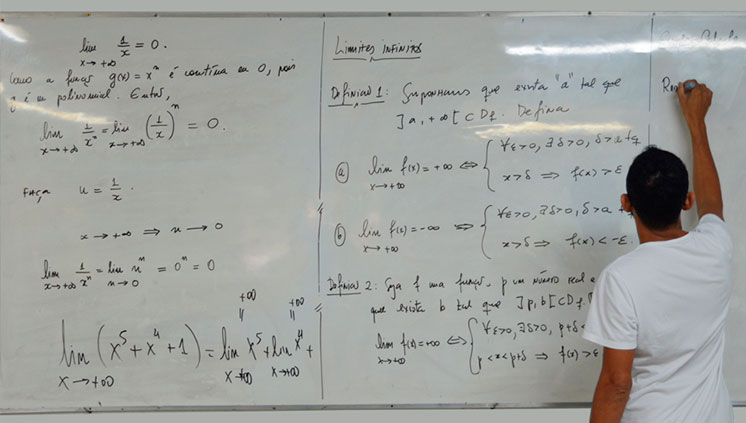 lim 1/x = 0.
x → +∞
Como a função g(x) = x^n é contínua em 0, pois
g é um polinomial. Então,
lim 1/x^n = lim (1/x)^n = 0.
x → +∞ x → +∞
FAÇA u = 1/x.
x → +∞ ⇒ u → 0
lim 1/x^n = lim u^n = 0^n = 0
x → +∞ u → 0
+∞ +∞
lim (x^5 + x^4 + 1) = lim x^5 + lim x^4 +
x → +∞ x → +∞ x → +∞
Limites infinitos
Definição 1: Suponhamos que exista "a" tal que
]a, +∞[ ⊂ Df. Defina
(a) lim f(x) = +∞ ⇔ { ∀ε>0, ∃δ>0, δ>a
x → +∞ x>δ ⇒ f(x)>ε
(b) lim f(x) = -∞ ⇔ { ∀ε>0, ∃δ>0, δ>a
x → +∞ x>δ ⇒ f(x) < -ε.
Definição 2: Seja f uma função, p um número real e
que exista b tal que ]p, b[ ⊂ Df.
lim f(x) = +∞ ⇔ { ∀ε>0, ∃δ>0, p+δ <
p < x < p+δ ⇒ f(x) > ε